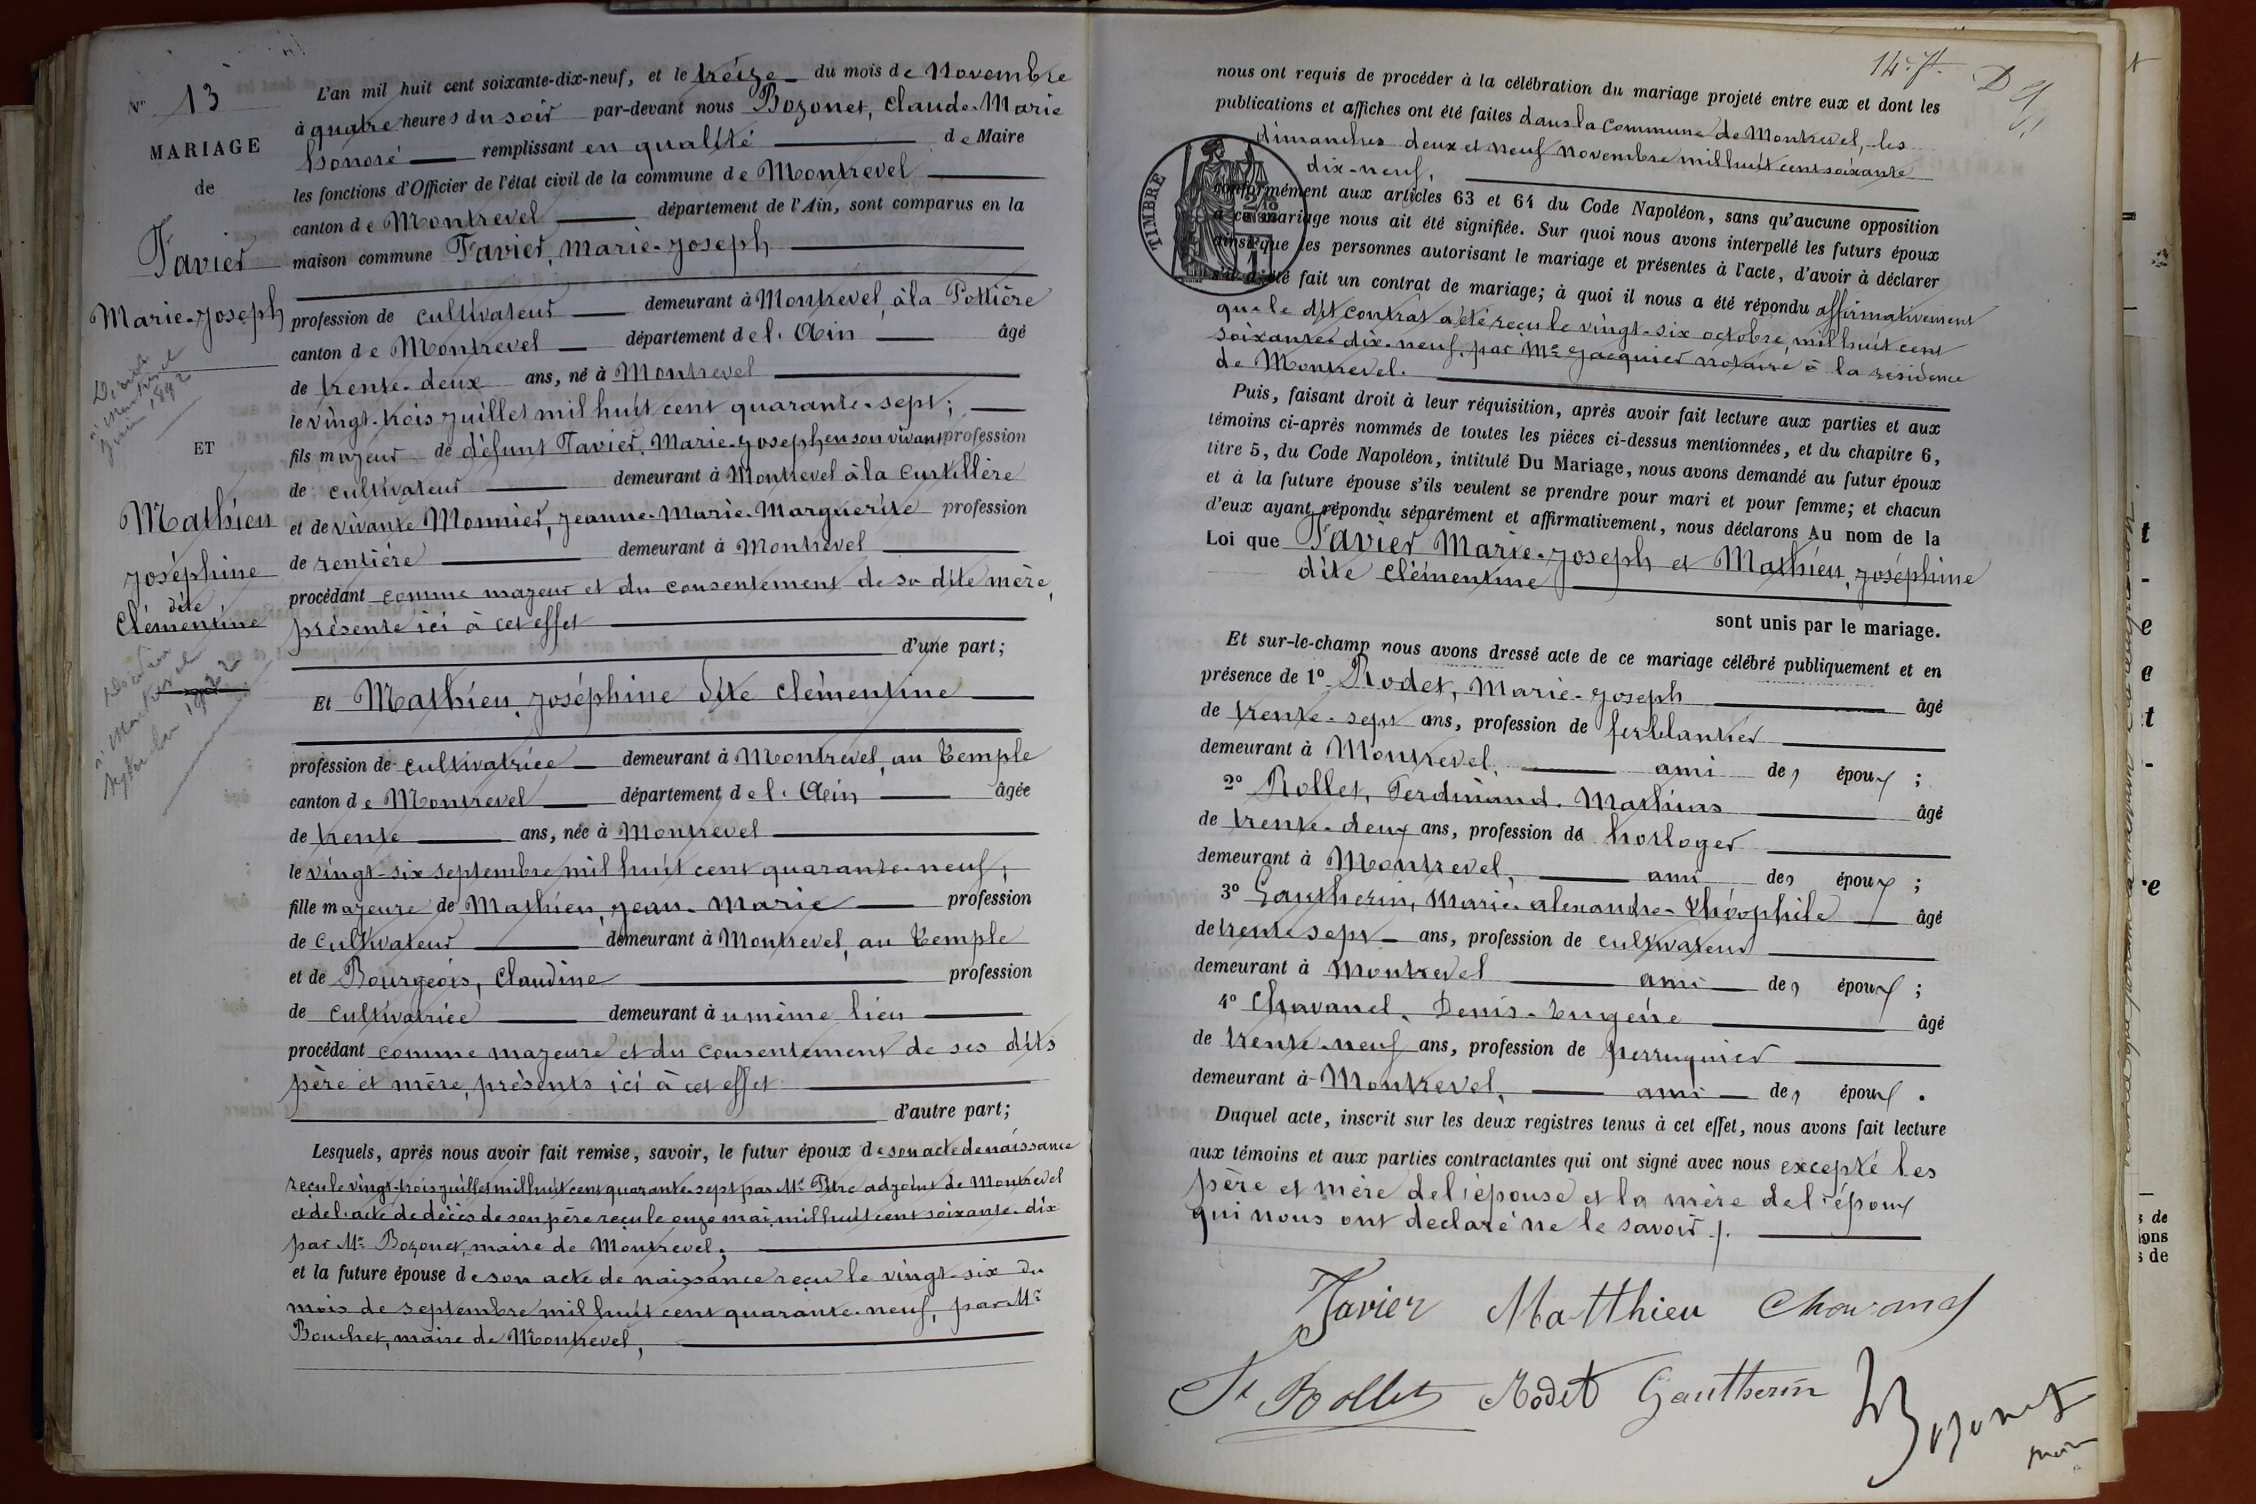 N° 13
MARIAGE
de
Favier
Marie-Joseph
ET
Mathieu
Joséphine
dite
Clémentine
L'an mil huit cent soixante-dix-neuf, et le treize du mois de Novembre
à quatre heures du soir par-devant nous Bozonet, Claude-Marie
honoré remplissant en qualité de Maire
les fonctions d'Officier de l'état civil de la commune de Montrevel
canton de Montrevel département de l'Ain, sont comparus en la
maison commune Favier, Marie-Joseph
profession de cultivateur demeurant à Montrevel, à la Pottière
canton de Montrevel département de l'Ain âgé
de trente-deux ans, né à Montrevel
le vingt-trois juillet mil huit cent quarante-sept;
fils majeur de défunt Favier, Marie-Joseph en son vivant profession
de cultivateur demeurant à Montrevel à la Curtillère
et de vivante Monnier, Jeanne-Marie-Marguerite profession
de rentière demeurant à Montrevel
procédant comme majeur et du consentement de sa dite mère,
présente ici à cet effet
d'une part;
Et Mathieu, Joséphine dite Clémentine
profession de cultivatrice demeurant à Montrevel, au Temple
canton de Montrevel département de l'Ain âgée
de trente ans, née à Montrevel
le vingt-six septembre mil huit cent quarante-neuf,
fille majeure de Mathieu, Jean-Marie profession
de cultivateur demeurant à Montrevel, au Temple
et de Bourgeois, Claudine profession
de cultivatrice demeurant au même lieu
procédant comme majeure et du consentement de ses dits
père et mère, présents ici à cet effet
d'autre part;
Lesquels, après nous avoir fait remise, savoir, le futur époux de son acte de naissance
reçu le vingt-trois juillet mil huit cent quarante-sept par Mr adjoint de Montrevel
et de l'acte de décès de son père reçu le onze mai mil huit cent soixante-dix
par Mr Bozonet, maire de Montrevel,
et la future épouse de son acte de naissance reçu le vingt-six du
mois de septembre mil huit cent quarante-neuf, par Mr
Bouchet, maire de Montrevel,
14. ft.
nous ont requis de procéder à la célébration du mariage projeté entre eux et dont les
publications et affiches ont été faites dans la commune de Montrevel, les
dimanches deux et neuf novembre mil huit cent soixante
dix-neuf,
TIMBRE
conformément aux articles 63 et 64 du Code Napoléon, sans qu'aucune opposition
à ce mariage nous ait été signifiée. Sur quoi nous avons interpellé les futurs époux
ainsi que les personnes autorisant le mariage et présentes à l'acte, d'avoir à déclarer
s'il a été fait un contrat de mariage; à quoi il nous a été répondu affirmativement
que le dit contrat a été reçu le vingt-six octobre, mil huit cent
soixante-dix-neuf, par Me Jacquier notaire à la résidence
de Montrevel.
Puis, faisant droit à leur réquisition, après avoir fait lecture aux parties et aux
témoins ci-après nommés de toutes les pièces ci-dessus mentionnées, et du chapitre 6,
titre 5, du Code Napoléon, intitulé Du Mariage, nous avons demandé au futur époux
et à la future épouse s'ils veulent se prendre pour mari et pour femme; et chacun
d'eux ayant répondu séparément et affirmativement, nous déclarons Au nom de la
Loi que Favier Marie-Joseph et Mathieu, Joséphine
dite Clémentine
sont unis par le mariage.
Et sur-le-champ nous avons dressé acte de ce mariage célébré publiquement et en
présence de 1° Rodet, Marie-Joseph âgé
de trente-sept ans, profession de ferblantier
demeurant à Montrevel, ami des époux ;
2° Rollet, Ferdinand-Mathias âgé
de trente-deux ans, profession de horloger
demeurant à Montrevel, ami des époux ;
3° Gautherin, Marie-Alexandre-Théophile âgé
de trente sept ans, profession de cultivateur
demeurant à Montrevel ami des époux ;
4° Chavanel, Denis-Eugène âgé
de trente-neuf ans, profession de perruquier
demeurant à Montrevel, ami des époux .
Duquel acte, inscrit sur les deux registres tenus à cet effet, nous avons fait lecture
aux témoins et aux parties contractantes qui ont signé avec nous excepté les
père et mère de l'épouse et la mère de l'époux
qui nous ont déclaré ne le savoir.
Favier Matthieu Chavanel
Rollet Rodet Gautherin
Bozonet
maire